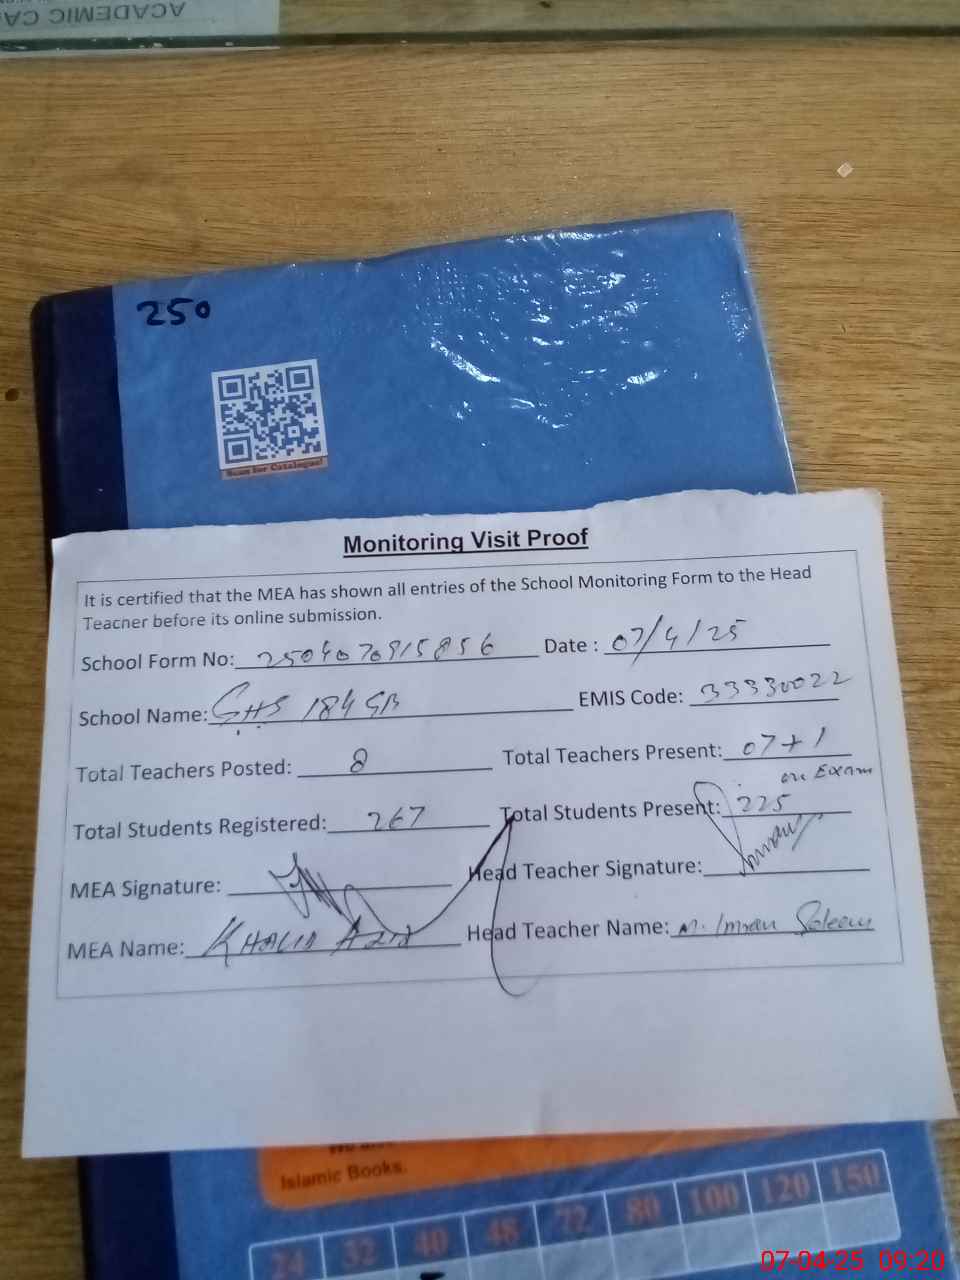 ACADEMIC CA
250
Scan for Catalogue!
Monitoring Visit Proof
It is certified that the MEA has shown all entries of the School Monitoring Form to the Head
Teacher before its online submission.
School Form No: 250407915856 Date : 07/4/25
School Name: GHS 184 GB EMIS Code: 33330022
Total Teachers Posted: 8 Total Teachers Present: 07+1
on Exam
Total Students Registered: 267 Total Students Present: 225
MEA Signature: Head Teacher Signature: Imran
MEA Name: KHALID AZIZ Head Teacher Name: M. Imran Saleem
Islamic Books.
24 32 40 48 72 80 100 120 150
07-04-25 09:20